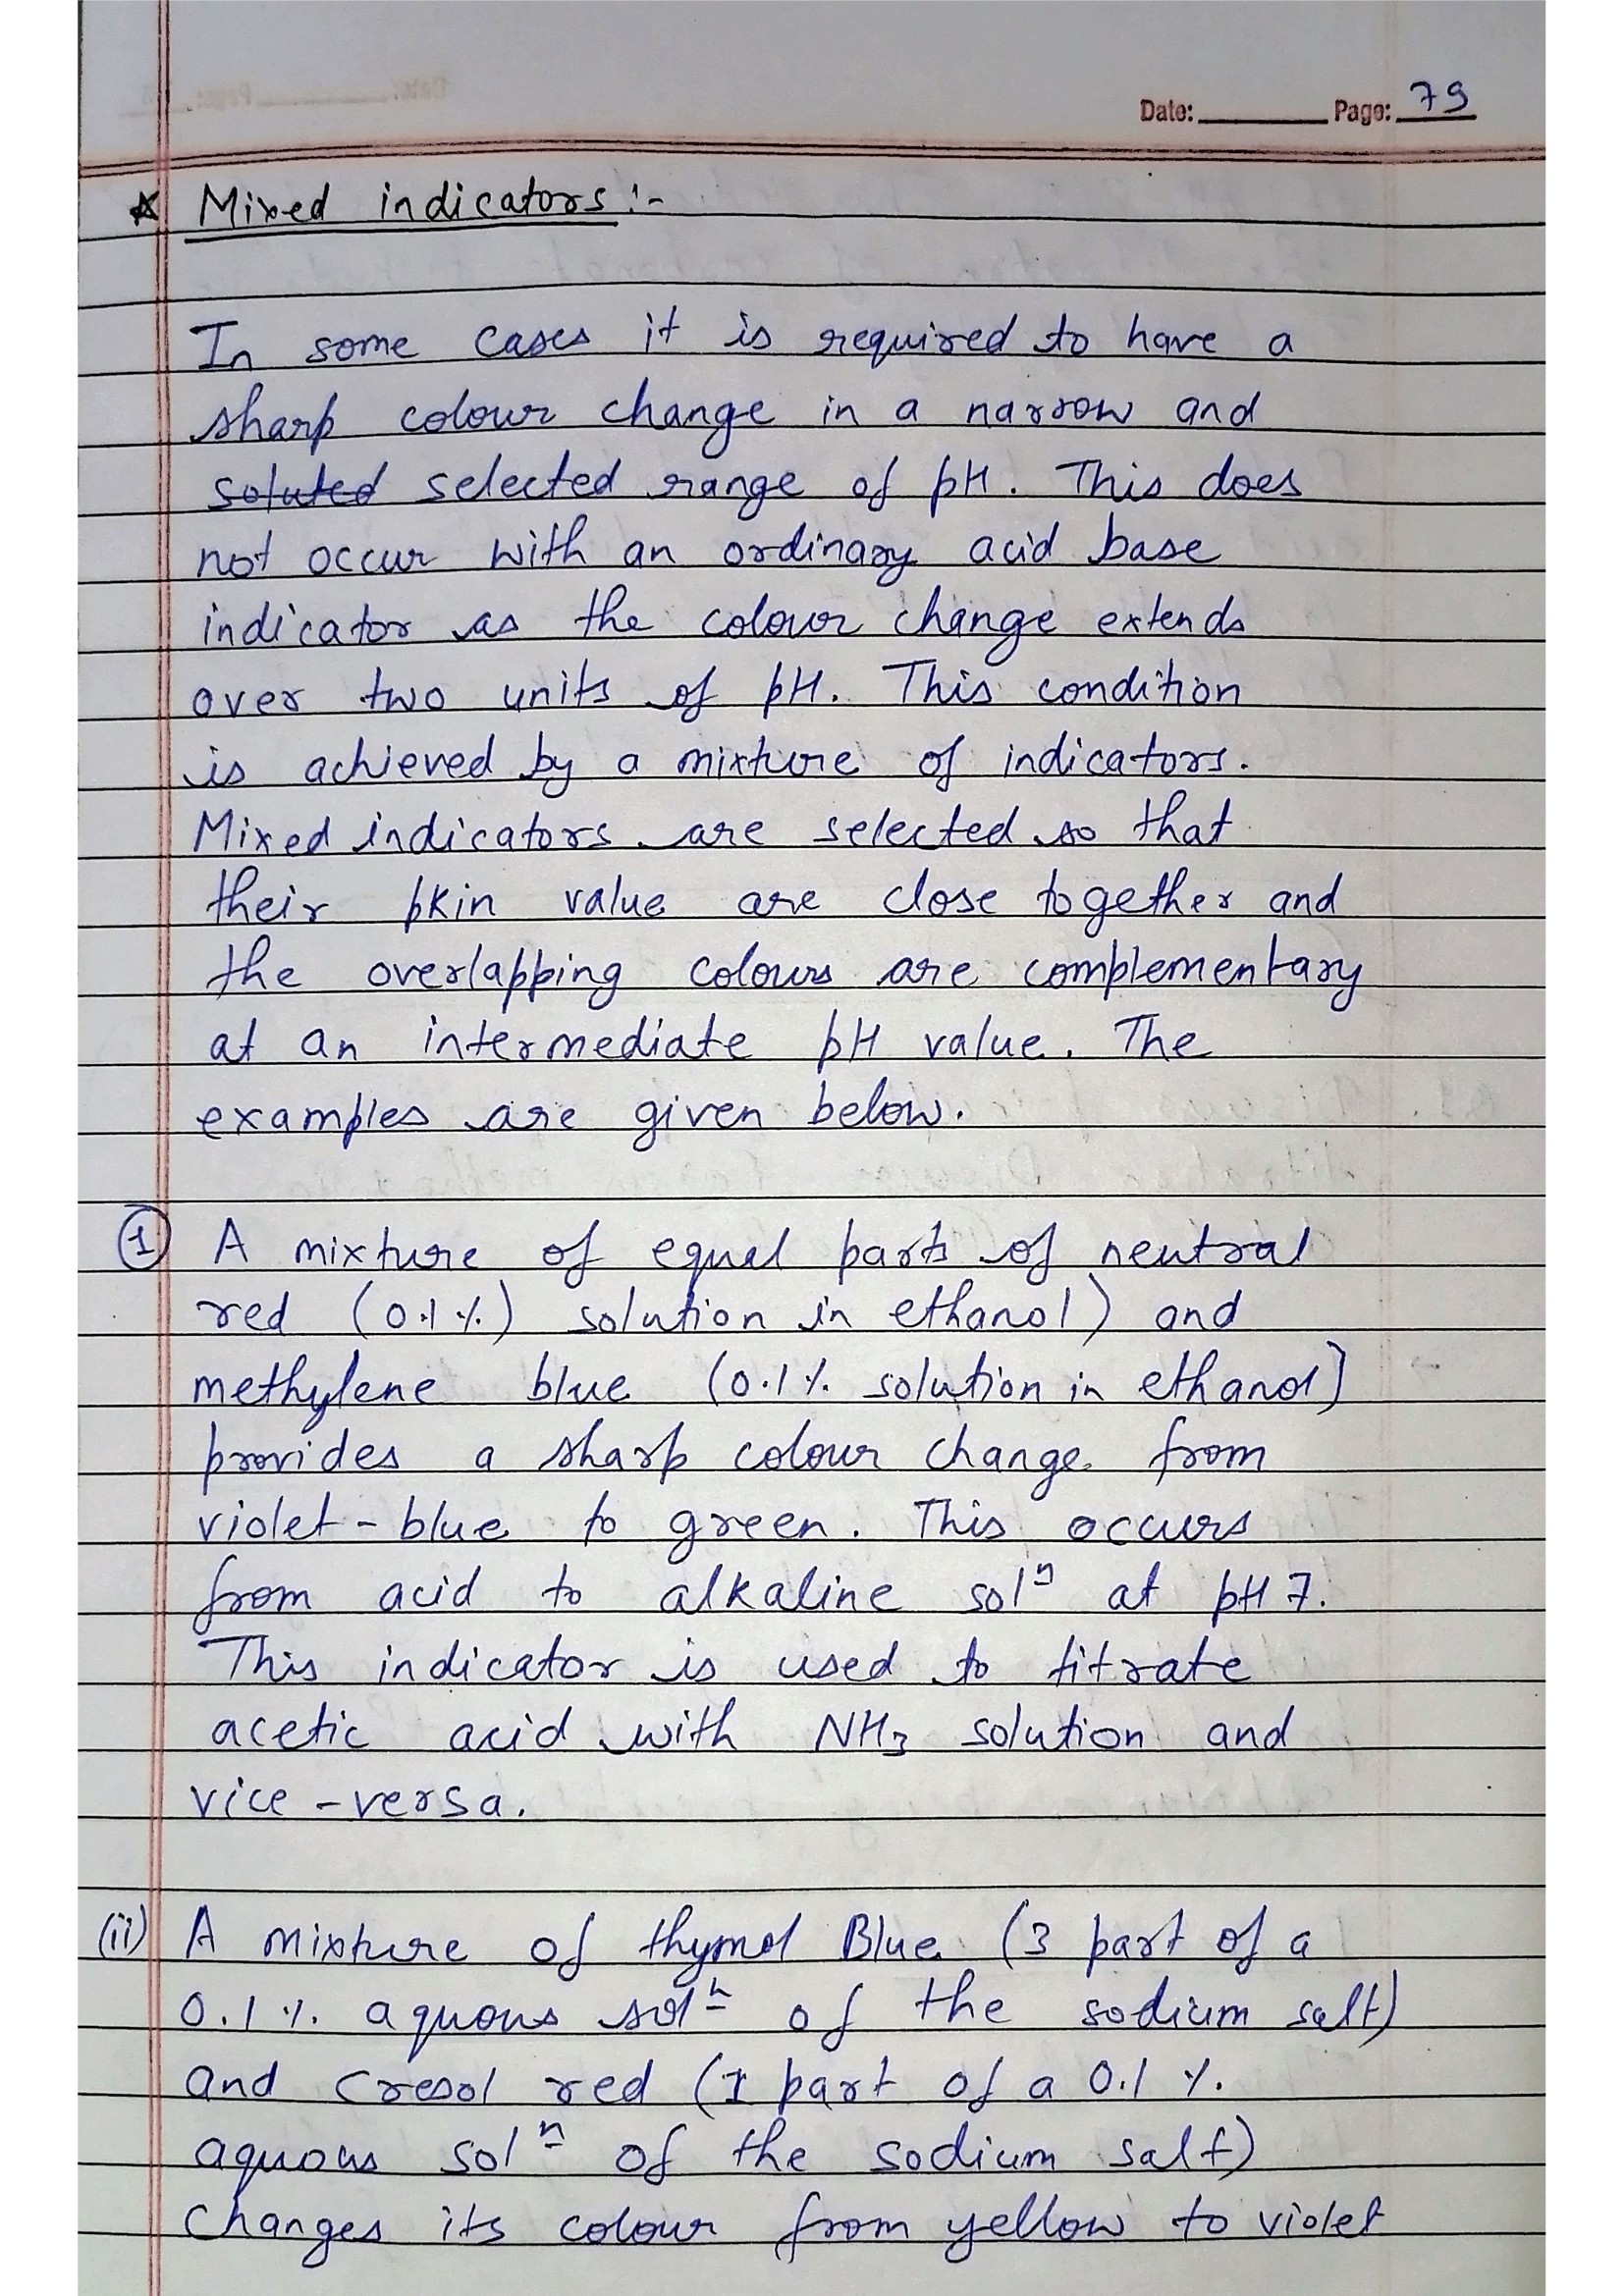 Date: ________ Page: 79
* Mixed indicators :-
In some cases it is required to have a
sharp colour change in a narrow and
soluted selected range of pH. This does
not occur with an ordinary acid base
indicator as the colour change extends
over two units of pH. This condition
is achieved by a mixture of indicators.
Mixed indicators are selected so that
their pkin value are close together and
the overlapping colours are complementary
at an intermediate pH value. The
examples are given below.
① A mixture of equal parts of neutral
red (0.1%) solution in ethanol) and
methylene blue (0.1% solution in ethanol)
provides a sharp colour change from
violet - blue to green. This occurs
from acid to alkaline solⁿ at pH 7.
This indicator is used to titrate
acetic acid with NH₃ solution and
vice - versa.
(ii) A mixture of thymol Blue (3 part of a
0.1%. aquous solⁿ of the sodium salt)
and cresol red (1 part of a 0.1 %.
aquous solⁿ of the sodium salt)
changes its colour from yellow to violet